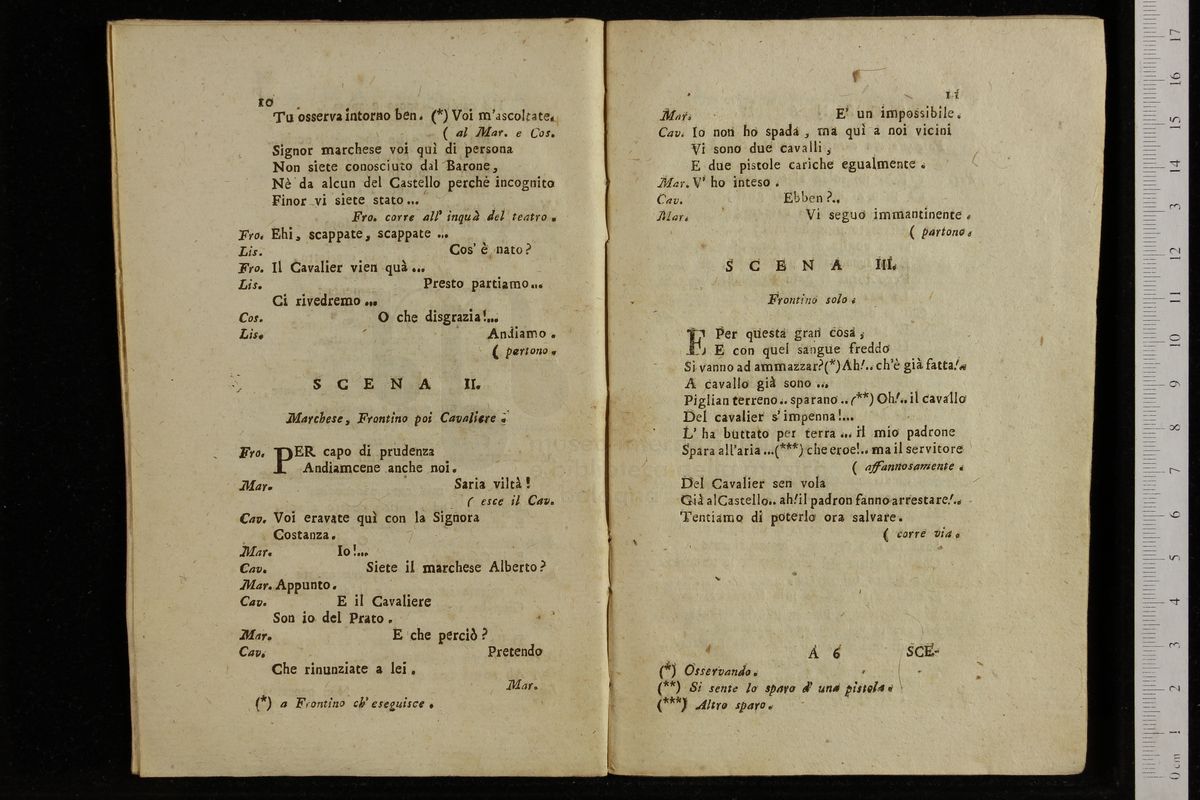 10
Tu osserva intorno ben. (*) Voi m'ascoltate.
( al Mar. e Cos.
Signor marchese voi quì di persona
Non siete conosciuto dal Barone,
Nè da alcun del Castello perchè incognito
Finor vi siete stato...
Fro. corre all' inquà del teatro.
Fro. Ehi, scappate, scappate ...
Lis. Cos' è nato?
Fro. Il Cavalier vien quà...
Lis. Presto partiamo...
Ci rivedremo ...
Cos. O che disgrazia!...
Lis. Andiamo.
( partono.
SCENA II.
Marchese, Frontino poi Cavaliere.
Fro. PER capo di prudenza
Andiamcene anche noi.
Mar. Saria viltà!
( esce il Cav.
Cav. Voi eravate quì con la Signora
Costanza.
Mar. Io!...
Cav. Siete il marchese Alberto?
Mar. Appunto.
Cav. E il Cavaliere
Son io del Prato.
Mar. E che perciò?
Cav. Pretendo
Che rinunziate a lei.
Mar.
(*) a Frontino ch' eseguisce.
11
Mar. E' un impossibile.
Cav. Io non ho spada, ma quì a noi vicini
Vi sono due cavalli,
E due pistole cariche egualmente.
Mar. V' ho inteso.
Cav. Ebben?..
Mar. Vi seguo immantinente.
( partono.
SCENA III.
Frontino solo.
E Per questa gran cosa,
E con quel sangue freddo
Si vanno ad ammazzar?(*) Ah!.. ch'è già fatta!..
A cavallo già sono ...
Piglian terreno.. sparano..(**) Oh!.. il cavallo
Del cavalier s'impenna!...
L' ha buttato per terra ... il mio padrone
Spara all'aria ...(***) che eroe!.. ma il servitore
( affannosamente.
Del Cavalier sen vola
Già al Castello.. ah! il padron fanno arrestare!..
Tentiamo di poterlo ora salvare.
( corre via.
A 6 SCE-
(*) Osservando.
(**) Si sente lo sparo d' una pistola.
(***) Altro sparo.
0 cm 1 2 3 4 5 6 7 8 9 10 11 12 13 14 15 16 17